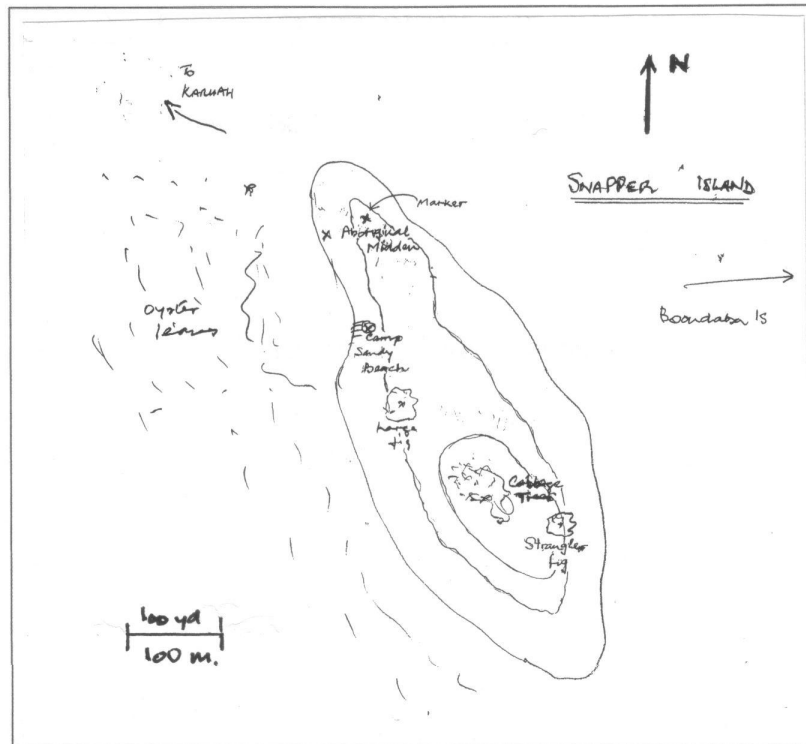 To
KARUAH
N
SNAPPER ISLAND
Marker
Aboriginal
Midden
Boondaba Is
Oyster
leases
Camp
Sandy
Beach
Large
fig
Cabbage
Trees
Strangler
fig
100 yd
100 m.